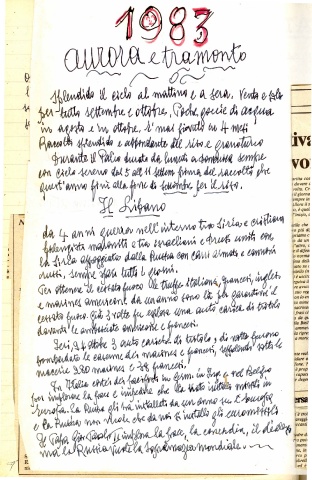 1983
aurora e tramonto
Splendido il cielo al mattino e a sera. Vento e
per tutto settembre e ottobre. Poche goccie di acqua
in agosto e in ottobre. S'mai piovuto in 4 mesi
Raccolto splendido e abbondante del riso e granoturco
Durante il Palio durato da lunedì a domenica sempre
con cielo sereno dal 5 all 11 settem prima del raccolto che
quest'anno finì alla fine di settembre per il riso.
Il Libano
da 4 anni guerra nell'interno tra Siria e cristiani
falangisti maroniti e tra israeliani e drusi uniti con
la Siria appoggiato dalla Russia con carri armati e cannoni
russi, sempre tutti i giorni.
Per ottenere il cessato fuoco le truppe Italiane, francesi, inglesi
e marines americani da un anno sono là per garantire il
cessato fuoco. Già 3 volte fu esplosa una auto carica di tritolo
davanti le ambasciate americane e francesi.
Ieri, 24 ottobre 3 auto cariche di tritolo, di notte furono
bombardate le caserme dei marines e francesi, seppellendo sotto le
macerie 320 marines e 28 francesi.
In Italia cortei dei pacifisti in Germ in Ing. e nel Belgio
per implorare la pace e impedire che
Europa. La Russia gli ha installati da un anno
e la Russia non vuole che da noi si installa gli euromissili
Il Papa Gian Paolo II implora la pace, la concordia, il dialogo
ma la Russia vuole la supremazia mondiale.